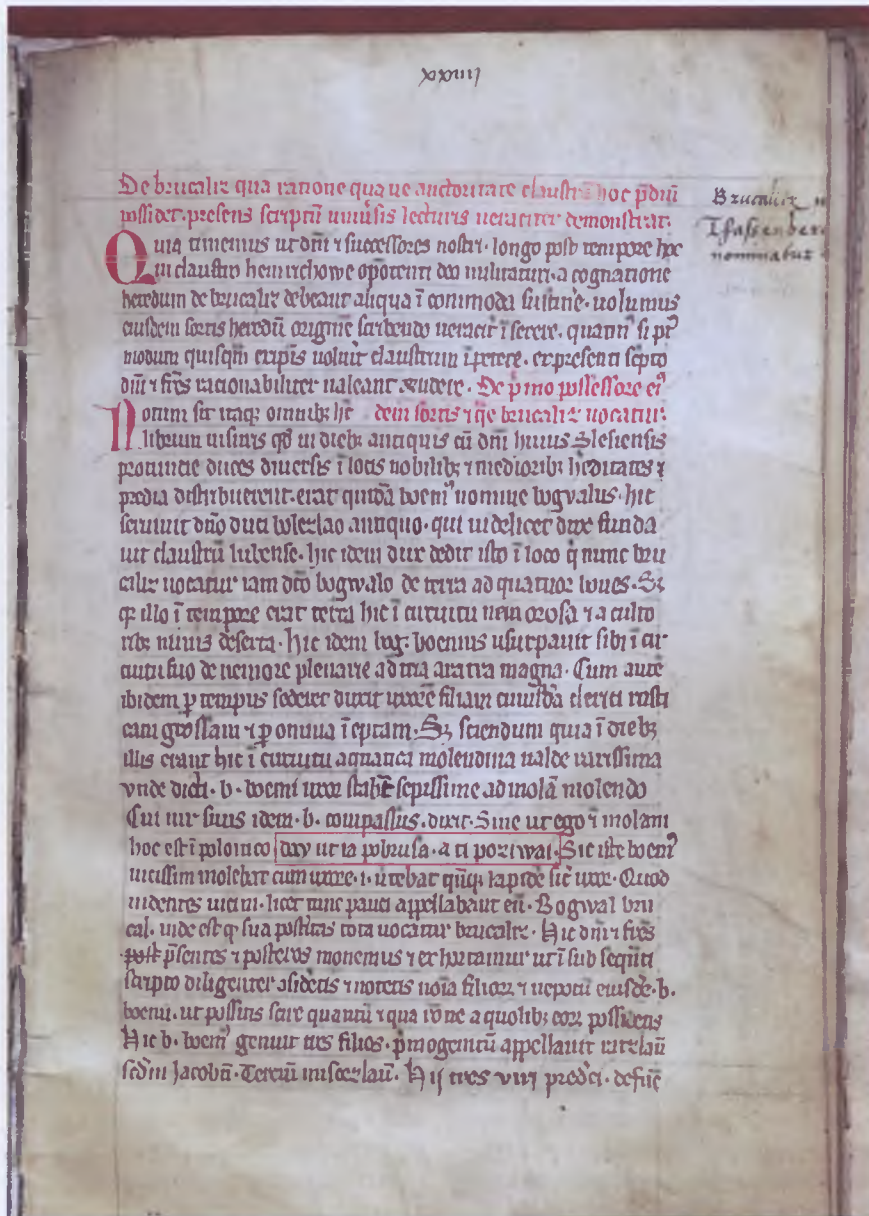 xxiiij
De brucaliz qua ratione qua ue auctoritate claustrū hoc p̄diū
possidet. presens scriptū uniũsis lecturis ueraciter demonstrat.
Quia timemus ut dn̄i ⁊ successores nostri. longo post tempore hoc
in claustro heinrichowe op̄otenti deo militaturi. a cognatione
heredum de brucaliz debeant aliqua īcommoda sustinẽ. uolumus
eiusdem sortis heredū originē scribendo ueracit̃ īserere. quatin᷒ si p᷒t
modum quisq̄m eripis uoluãit claustrum īpetere. ex presenti sc̄pto
dn̄i ⁊ fr̄es racionabiliter ualeant rñdere. De p̃mo possessore ei᷒
dem sortis ⁊ q̃re brucaliz uocatur.
Notum sit itaq; omnib; hc̄
librum uisuris qd̄ in dieb; antiquis cū dn̄i huius Slesiensis
prouincie duces diuersis ī locis nobilib; ⁊ mediocrib; h̃editates ⁊
predia distribuerent. erat quidā boem᷒ nomine bogvalus. hic
seruiuit dn̄o duci bolezlao antiquo. qui uidelicet dux funda
uit claustrū lubense. hic idem dux dedit isto ī loco q̃ nunc bru
caliz uocatur iam dc̄o bogwalo de terra ad quatuor boues. S;
q̃ illo ī tempore erat terra hic ī circuitu nemorosa ⁊ a culto
rib; nimis deserta. hic idem bog: boemus usurpauit sibi ī cir
cuitu suo de nemore plenarie ad tria aratra magna. Cum autē
ibidem p tempus sederet duxit uxorē filiam cuiusdā clerici rusti
cam grossam ⁊ p omnia īeptam. S; sciendum quia ī dieb;
illis erant hic ī circuitu aquatica molendina ualde rarissima
vnde dicti. b. boemi uxor stabat sepissime ad molā molendo
Cui uir suus idem. b. compassus. dixit. Sine ut ego ⁊ molam
hoc est ī polonico day ut ia pobrusa. a ti poziwai. Sic iste boem᷒
uicissim molebat cum uxore. ⁊. uertebat q̃nq; lapidē sic̃ uxor. Quod
uidentes uicini. licet tunc pauci appellabant eū. Bogwal bru
cal. inde est q̃ sua post̃itas tota uocatur brucaliz. Hic dn̄i ⁊ fr̄es
post p̄sentes ⁊ posteros monemus ⁊ exhortamur ut ī sub seq̄nti
scripto diligenter ⁊sideretis ⁊ noteris noīa filioꝝ ⁊ nepotū eiusdē. b.
boemi. ut possitis scire quantū ⁊ qua rōne a quolib; eoꝝ possideatis
Hic b. boem᷒ genuit tres filios. p̃mogenitū appellauit raczlaū
sed̄m Jacobū. Terciū miscezlaū. Hij tres viri predc̄i. defūc̄
Brucaliz
nominabut᷒